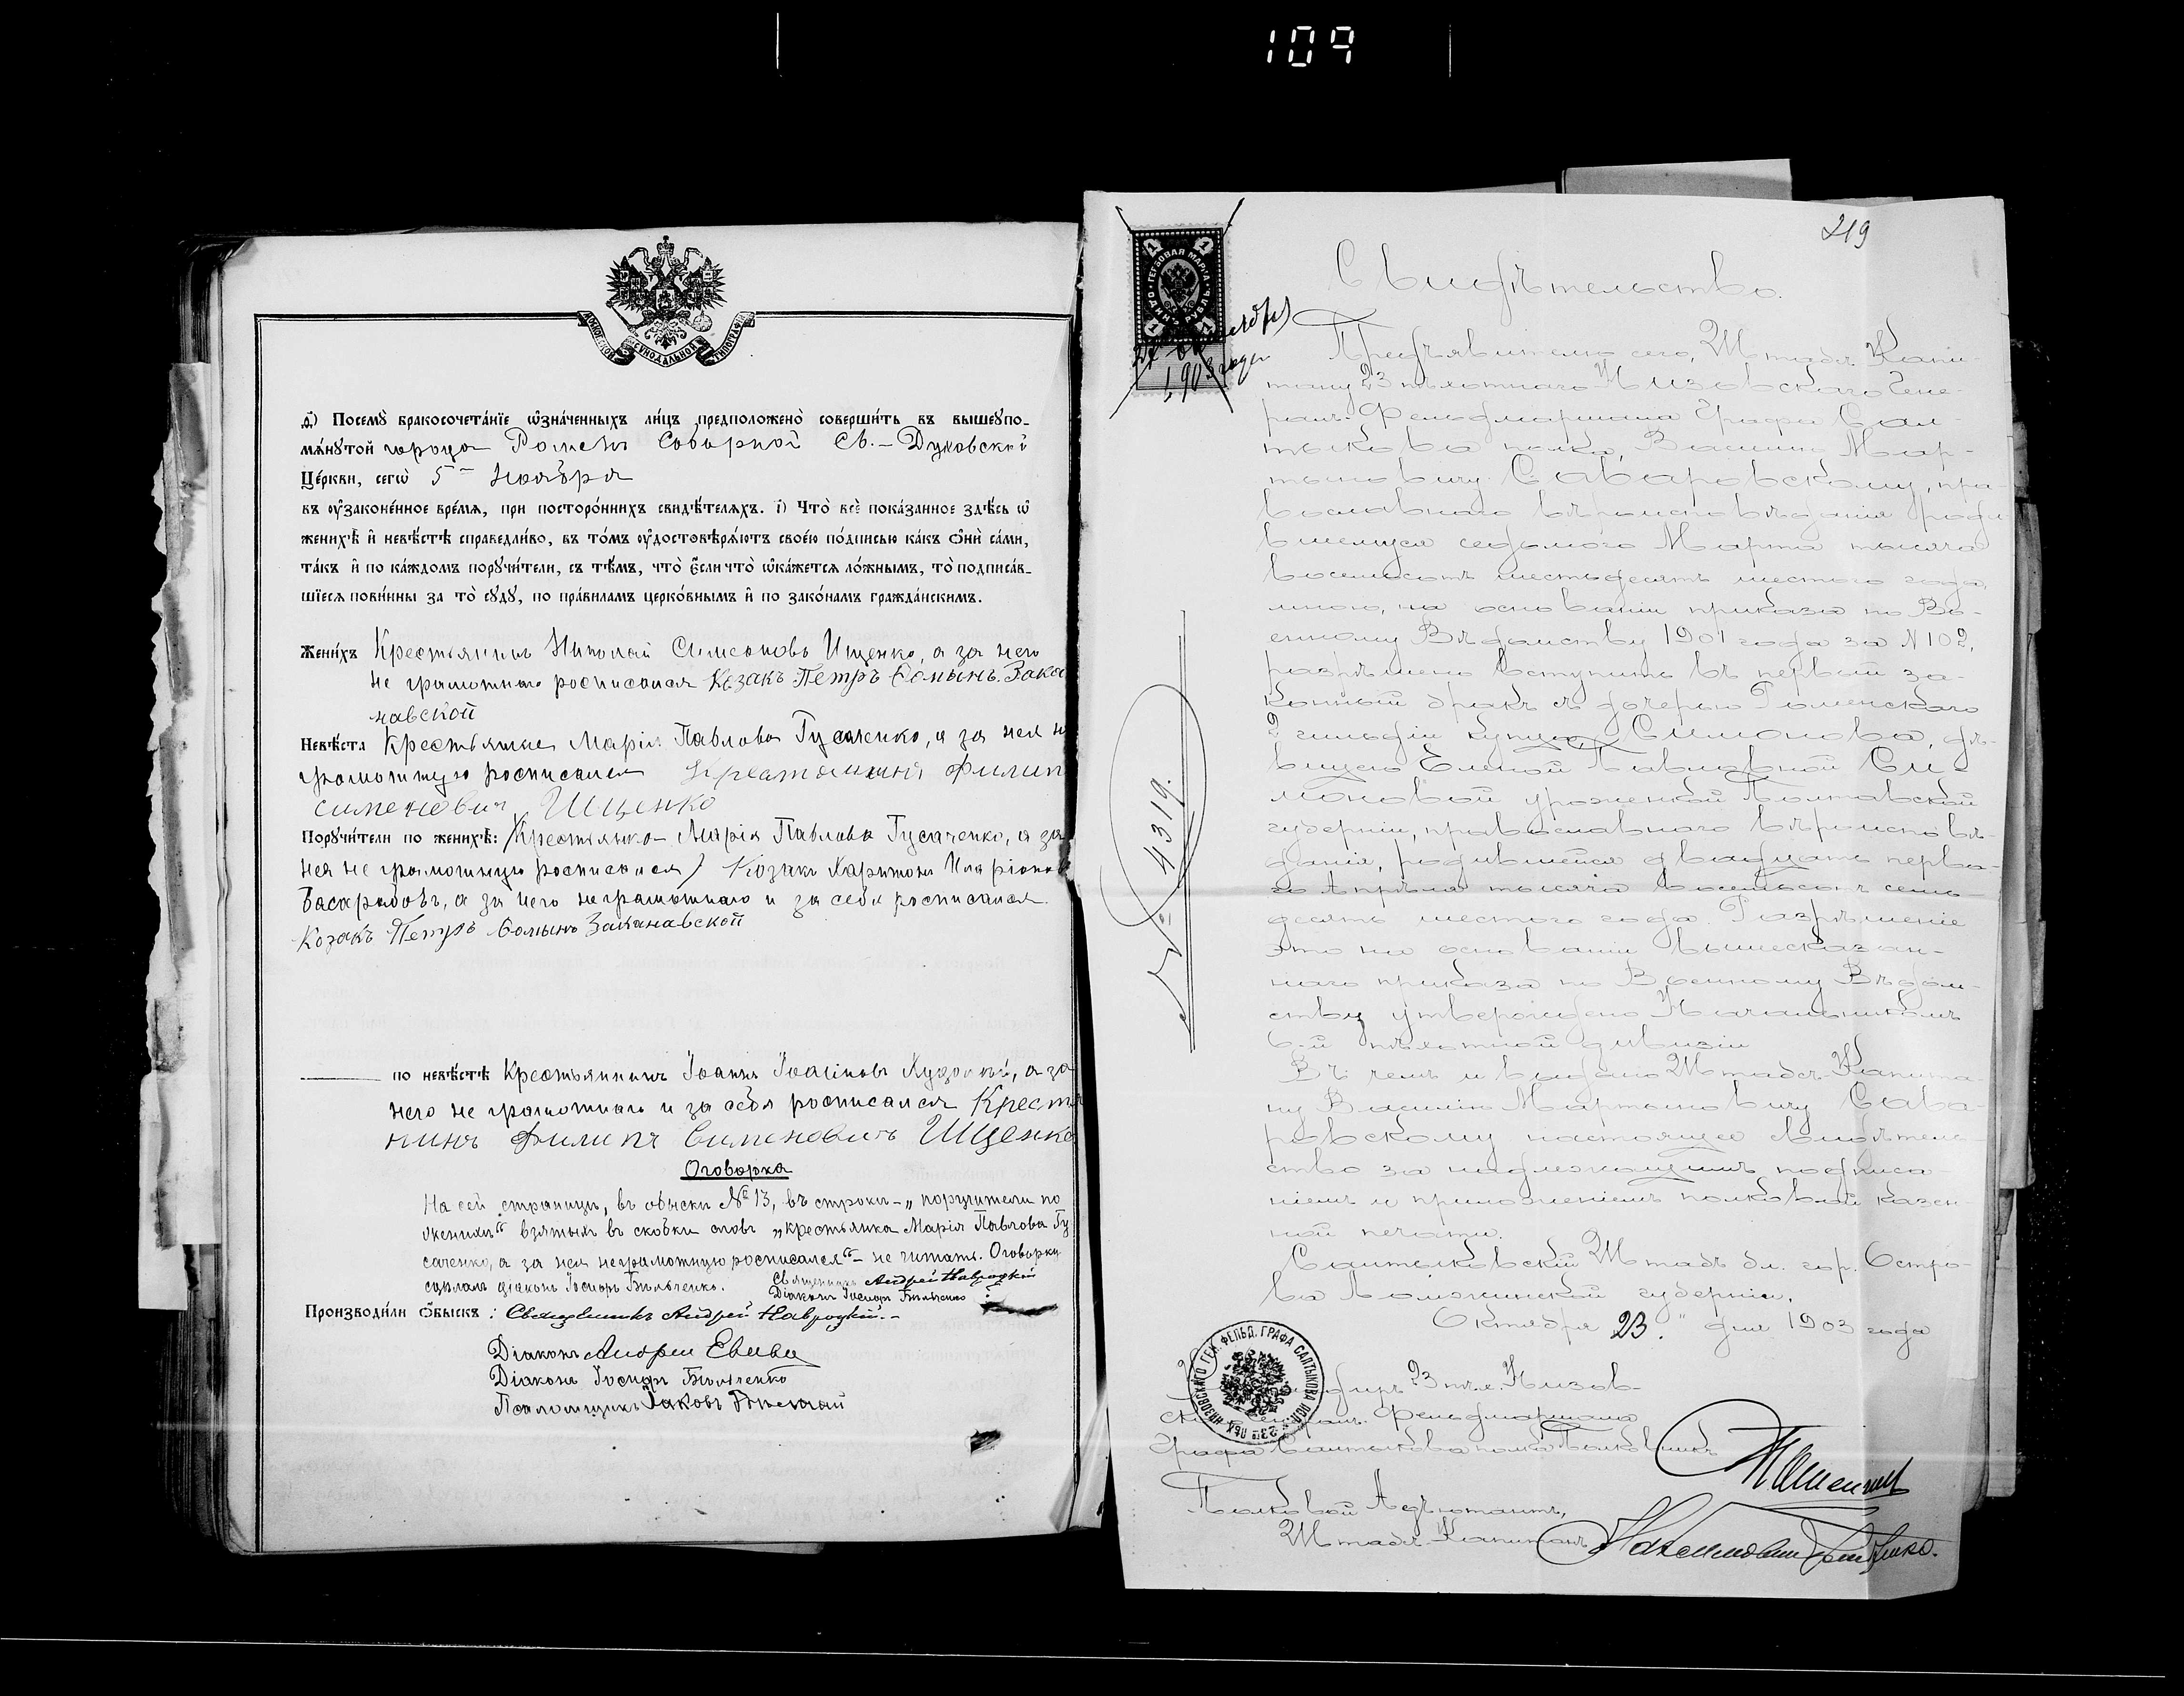 109
МОСКОВСКОЙ СѴНОДАЛЬНОЙ ТИПОГРАФІИ
д҃) Посемꙋ̀ бракосочета́нїе ѡ҆зна́ченныхъ ли́цъ предположено̀ соверши́ть въ вышеꙋпо-
мѧ́нꙋтой города Роменъ Соборной Св.-Духовской
Це́ркви, сегѡ̀ 5го Ноября
въ ᲂу҆зако́ненное вре́мѧ, при посторо́ннихъ свидѣ́телѧхъ. і҃) Что̀ всѐ пока́занное здѣ́сь ѡ҆
женихѣ̀ и҆ невѣ́стѣ справедли́во, въ то́мъ ᲂу҆достовѣрѧ́ютъ свое́ю по́дписью ка́къ ѻ҆нѝ са́ми,
та́къ и҆ по ка́ждомъ порꙋчи́тели, съ тѣ́мъ, что̀ є҆́сли что̀ ѡ҆ка́жетсѧ ло́жнымъ, то̀ подписа́в-
шїесѧ пови́нны за то̀ сꙋдꙋ̀, по пра́виламъ церко́внымъ и҆ по зако́намъ гражда́нскимъ.
Жени́хъ Крестьянинъ Николай Симеоновъ Ищенко, а за него
не грамотнаго росписался Козакъ Петръ Фомынъ Зака
навской
Невѣ́ста Крестьянка Марія Павлова Гусаченко, а за нея не
грамотную росписался Крестьянинъ Филип
Сименовичъ Ищенко
Порꙋчи́тели по женихѣ̀: (Крестьянка Марія Павлова Гусаченко, а за
нея не грамотную росписался) Козакъ Харитонъ Иларіоновъ
Басарабовъ, а за него неграмотнаго и за себя росписался
Козакъ Петръ Фомынъ Заканавской
по невѣ́стѣ Крестьянинъ Іоаннъ Іоакимовъ, а за
него не грамотнаго и за себя росписался Крестья
нинъ Филипъ Сименовичъ Ищенко
Оговорка
На сей страницѣ, въ обыскѣ № 13, въ строкѣ - „поручители по
женихѣ" взятыхъ въ скобки словъ „крестьянка Марія Павлова Гу
саченко, а за нея неграмотную росписался" - не читать. Оговорку
сдѣлалъ діаконъ Іосифъ Бѣльченко. Священникъ Андрей Навроцкій
Діаконъ Іосифъ Бѣльченко
Производи́ли ѻ҆́быскъ: Священникъ Андрей Навроцкій.
Діаконъ Андрей
Діаконъ Іосифъ Бѣльченко
Псаломщикъ Іаковъ
219
ГЕРБОВАЯ МАРКА ОДИНЪ РУБЛЬ
1 1 1 1
октября
1903 года
№ 4319.
Свидѣтельство.
Предъявителю сего, Штабсъ-Капи-
тану 23 пѣхотнаго Низовскаго Гене-
ралъ-Фельдмаршала Графа Сал-
тыкова полка, Василію Мар-
тыновичу Саваровскому, пра-
вославнаго вѣроисповѣданія роди
вшемуся седьмого Марта тысяча
восемьсотъ шестьдесятъ шестого года,
мною, на основаніи приказа по Во-
енному Вѣдомству 1901 года за № 102,
разрѣшено вступить въ первый за-
конный бракъ съ дочерью Роменскаго
2 гильдіи купца Симонова, дѣ-
вицею Еленой Павловной Си-
моновой уроженкой Полтавской
губерніи, православнаго вѣроисповѣ-
данія, родившейся двадцать перва-
го Апрѣля тысяча восемьсотъ семь-
десятъ шестого года. Разрѣшеніе
это на основаніи вышесказан-
наго приказа по Военному Вѣдом-
ству утверждено Начальникомъ
6-й пѣхотной дивизіи
Въ чемъ и выдано Штабсъ-Капита-
ну Василію Мартыновичу Сава-
ровскому настоящее свидѣтель-
ство за надлежащимъ подписа-
ніемъ и приложеніемъ полковой казен-
ной печати.
Салтыковскій Штабъ бл. гор. Остро-
ва Ломжинской губерніи.
Октября „23" дня 1903 года
Командиръ 23 пѣх. Низов-
скаго Генералъ-Фельдмаршала
Графа Салтыкова полка Полковникъ
23го ПѢХ. НИЗОВСКАГО ГЕН. ФЕЛЬД. ГРАФА САЛТЫКОВА ПОЛ.
Полковой Адъютантъ,
Штабсъ-Капитанъ